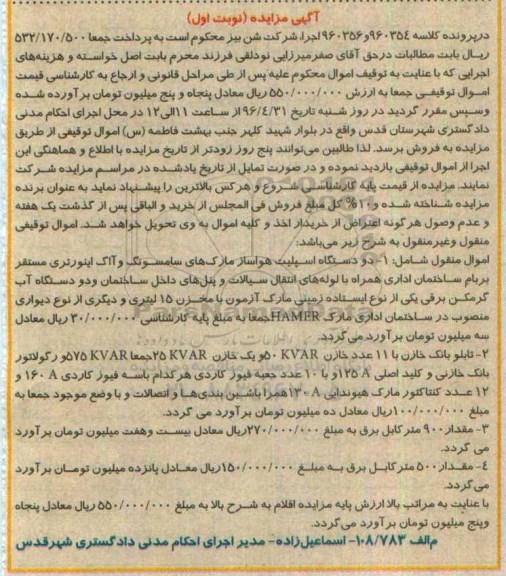 آگهی مزایده (نوبت اول)
درپرونده کلاسه ٩٦٠٣٥٤و٩٦٠٣٥٦اجرا، شرکت شن بیز محکوم است به پرداخت جمعا ٥٣٢/١٧٠/٥٠٠
ریال بابت مطالبات درحق آقای صفرمیرزایی نودلقی فرزند محرم بابت اصل خواسته و هزینه‌های
اجرایی که با عنایت به توقیف اموال محکوم علیه پس از طی مراحل قانونی و ارجاع به کارشناسی قیمت
اموال توقیفی جمعا به ارزش ٥٥٠/٠٠٠/٠٠٠ ریال معادل پنجاه و پنج میلیون تومان برآورده شده
وسپس مقرر گردید در روز شنبه تاریخ ٩٦/٤/٣١ از ساعت ١١الی١٢ در محل اجرای احکام مدنی
دادگستری شهرستان قدس واقع در بلوار شهید کلهر جنب بهشت فاطمه (س) اموال توقیفی از طریق
مزایده به فروش برسد. لذا طالبین می‌توانند پنج روز زودتر از تاریخ مزایده با اطلاع و هماهنگی این
اجرا از اموال توقیفی بازدید نموده و در صورت تمایل از تاریخ یادشده در مراسم مزایده شرکت
نمایند. مزایده از قیمت پایه کارشناسی شروع و هرکس بالاترین را پیشنهاد نماید به عنوان برنده
مزایده شناخته شده و١٠% کل مبلغ فروش فی المجلس از خرید و الباقی پس از گذشت یک هفته
و عدم وصول هرگونه اعتراض از خریدار اخذ و کلیه اموال به وی تحویل خواهد شد. اموال توقیفی
منقول وغیرمنقول به شرح زیر می‌باشد:
اموال منقول شامل: ١- دو دستگاه اسپلیت هواساز مارک‌های سامسونگ وآاک اینورتری مستقر
بربام ساختمان اداری همراه با لوله‌های انتقال سیالات و پنل‌های داخل ساختمان ودو دستگاه آب
گرمکن برقی یکی از نوع ایستاده زمینی مارک آزمون با مخزن ١٥ لیتری و دیگری از نوع دیواری
منصوب در ساختمان اداری مارک HAMERجمعا به مبلغ پایه کارشناسی ٣٠/٠٠٠/٠٠٠ ریال معادل
سه میلیون تومان برآورد می‌گردد.
٢- تابلو بانک خازن با ١١ عدد خازن ٥٠ KVARو یک خازن ٢٥ KVARجمعا ٥٧٥ KVARو رگولاتور
بانک خازنی و کلید اصلی ١٢٥ Aو با ١٠ عدد جعبه فیوز کاردی هرکدام باسه فیوز کاردی ١٦٠ A و
١٢ عدد کنتاکتور مارک هیوندایی ١٣٠ Aهمرا باشین بندی‌ها و اتصالات و با وضع موجود جمعا به
مبلغ ١٠٠/٠٠٠/٠٠٠ریال معادل ده میلیون تومان برآورد می گردد.
٣- مقدار٩٠٠ مترکابل برق به مبلغ ٢٧٠/٠٠٠/٠٠٠ریال معادل بیست وهفت میلیون تومان برآورد
می گردد.
٤- مقدار٥٠٠ مترکابل برق به مبلغ ١٥٠/٠٠٠/٠٠٠ریال معادل پانزده میلیون تومان برآورد
می‌گردد.
با عنایت به مراتب بالا ارزش پایه مزایده اقلام به شرح بالا به مبلغ ٥٥٠/٠٠٠/٠٠٠ ریال معادل پنجاه
وپنج میلیون تومان برآورد می‌گردد.
م‌الف ١٠٨/٧٨٣- اسماعیل‌زاده- مدیر اجرای احکام مدنی دادگستری شهرقدس